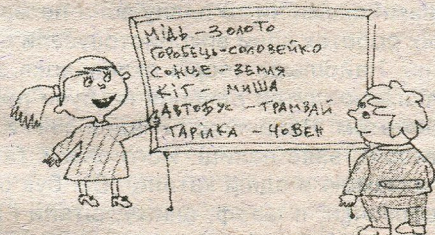 МІДЬ – ЗОЛОТО
ГОРОБЕЦЬ – СОЛОВЕЙКО
СОНЦЕ – ЗЕМЛЯ
КІТ – МИША
АВТОБУС – ТРАМВАЙ
ТАРІЛКА – ЧОВЕН